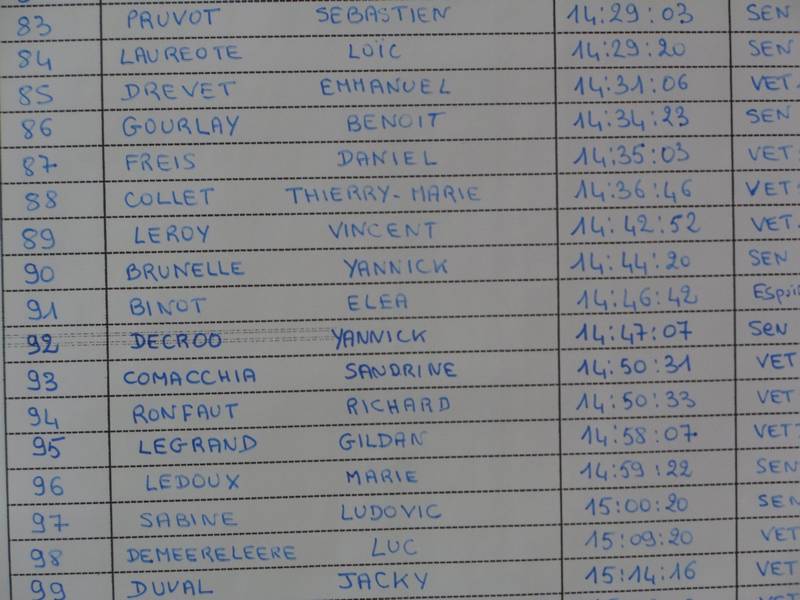 83 PRUVOT SEBASTIEN 14:29:03 SEN
84 LAUREOTE LOÏC 14:29:20 SEN
85 DREVET EMMANUEL 14:31:06 VET
86 GOURLAY BENOIT 14:34:23 SEN
87 FREIS DANIEL 14:35:03 VET
88 COLLET THIERRY-MARIE 14:36:46 VET
89 LEROY VINCENT 14:42:52 VET
90 BRUNELLE YANNICK 14:44:20 SEN
91 BINOT ELEA 14:46:42 ESpoi
92 DECROO YANNICK 14:47:07 SEN
93 COMACCHIA SANDRINE 14:50:31 VET
94 RONFAUT RICHARD 14:50:33 VET
95 LEGRAND GILDAN 14:58:07 VET
96 LEDOUX MARIE 14:59:22 SEN
97 SABINE LUDOVIC 15:00:20 SEN
98 DEMEERELEERE LUC 15:09:20 VET
99 DUVAL JACKY 15:14:16 VET